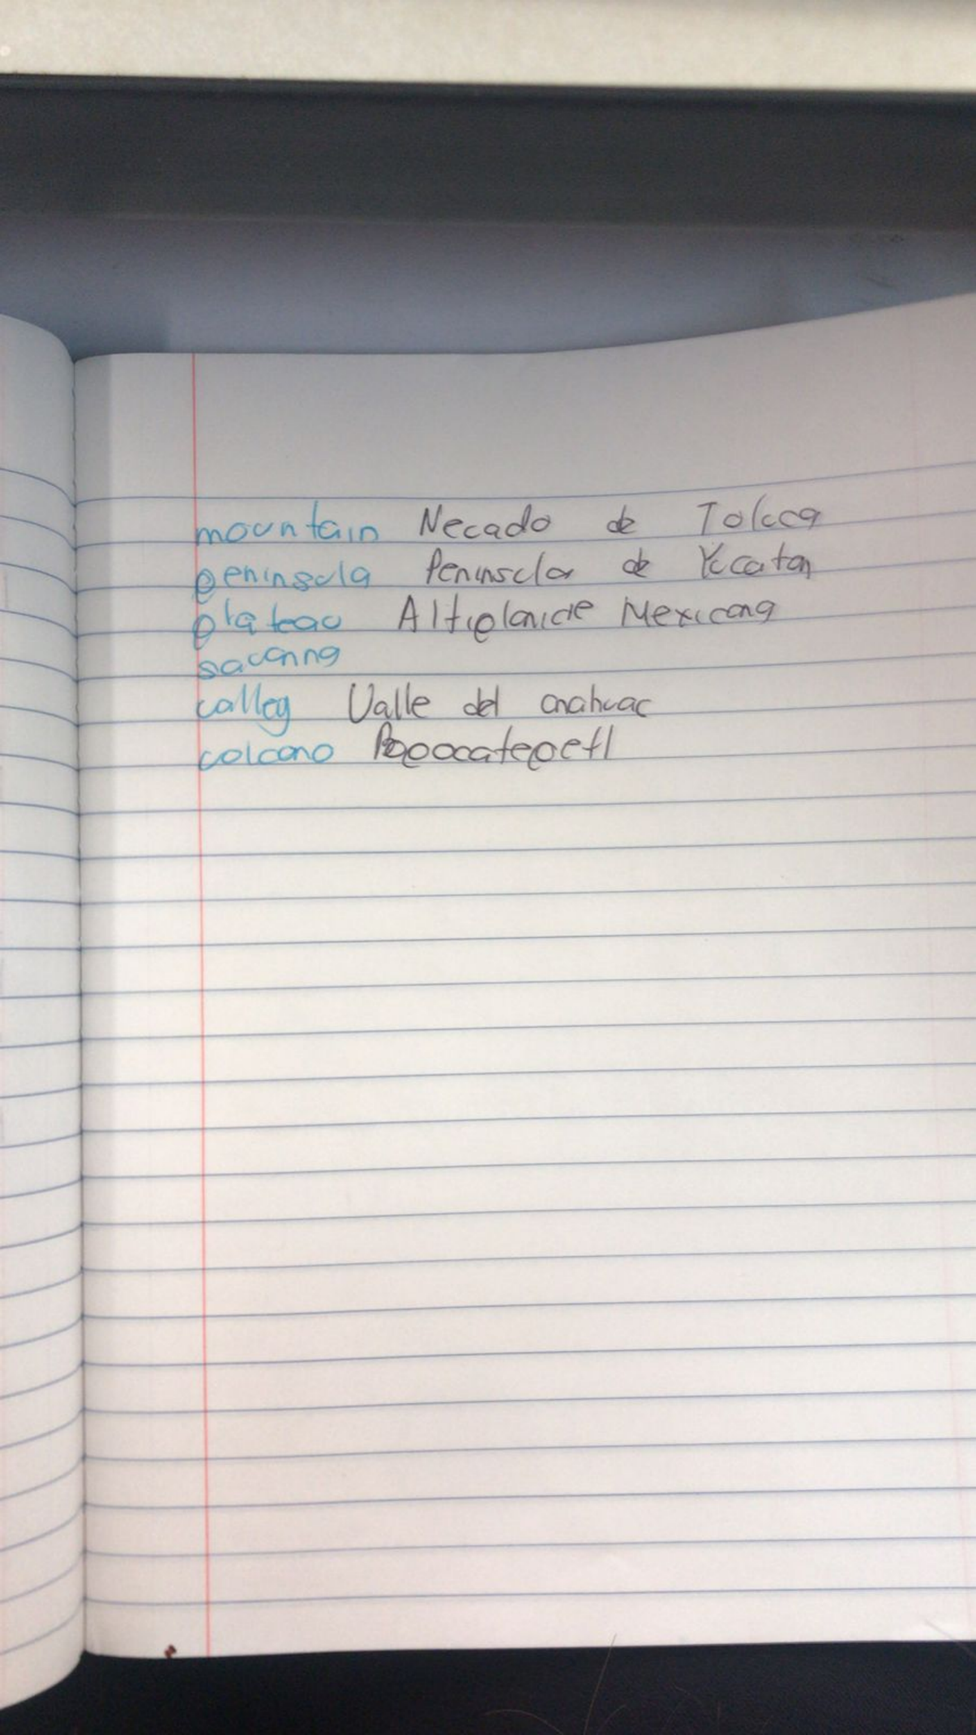 mountain Necado de Toluca
peninsula Peninsula de Yucatan
plateau Altiplanicie Mexicana
savanna
valley Valle del anahuac
volcano Popocatepetl